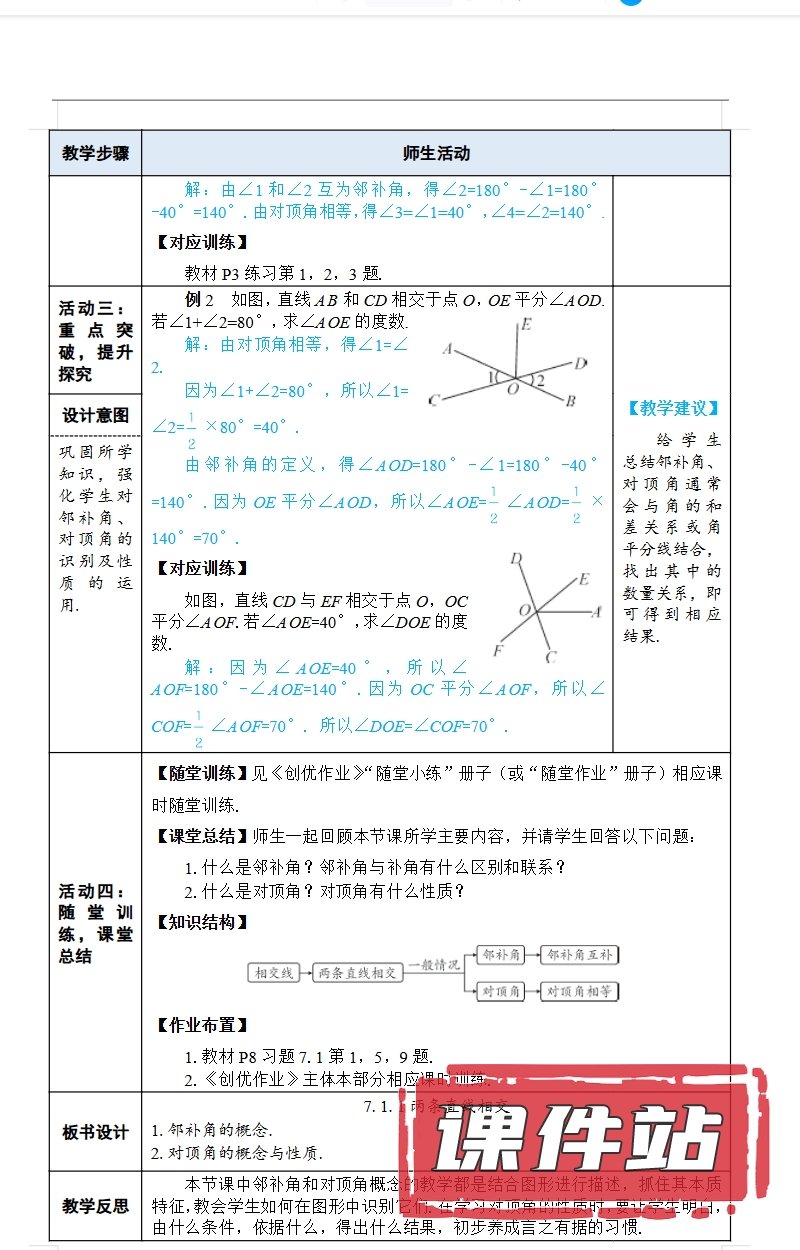 教学步骤
师生活动
解：由∠1 和∠2 互为邻补角，得∠2=180°-∠1=180°
-40°=140°. 由对顶角相等，得∠3=∠1=40°，∠4=∠2=140°.
【对应训练】
教材 P3 练习第 1，2，3 题.
活动三：
重点突
破，提升
探究
设计意图
巩固所学
知识，强
化学生对
邻补角、
对顶角的
识别及性
质的运
用.
例 2 如图，直线 AB 和 CD 相交于点 O，OE 平分∠AOD.
若∠1+∠2=80°，求∠AOE 的度数.
解：由对顶角相等，得∠1=∠
2.
因为∠1+∠2=80°，所以∠1=
∠2=1/2×80°=40°.
由邻补角的定义，得∠AOD=180°-∠1=180°-40°
=140°. 因为 OE 平分∠AOD，所以∠AOE=1/2∠AOD=1/2×
140°=70°.
E
A
D
1
2
O
C
B
【对应训练】
如图，直线 CD 与 EF 相交于点 O，OC
平分∠AOF. 若∠AOE=40°，求∠DOE 的度
数.
解：因为∠AOE=40°，所以∠
AOF=180°-∠AOE=140°. 因为 OC 平分∠AOF，所以∠
COF=1/2∠AOF=70°. 所以∠DOE=∠COF=70°.
D
E
O
A
F
C
【教学建议】
给学生
总结邻补角、
对顶角通常
会与角的和
差关系或角
平分线结合，
找出其中的
数量关系，即
可得到相应
结果.
活动四：
随堂训
练，课堂
总结
【随堂训练】见《创优作业》“随堂小练”册子（或“随堂作业”册子）相应课
时随堂训练.
【课堂总结】师生一起回顾本节课所学主要内容，并请学生回答以下问题：
1. 什么是邻补角？邻补角与补角有什么区别和联系？
2. 什么是对顶角？对顶角有什么性质？
【知识结构】
相交线
两条直线相交
一般情况
邻补角
邻补角互补
对顶角
对顶角相等
【作业布置】
1. 教材 P8 习题 7.1 第 1，5，9 题.
2. 《创优作业》主体本部分相应课时训练.
板书设计
7.1.1 两条直线相交
1. 邻补角的概念.
2. 对顶角的概念与性质.
教学反思
本节课中邻补角和对顶角概念的教学都是结合图形进行描述，抓住其本质
特征，教会学生如何在图形中识别它们. 在学习对顶角的性质时，要让学生明白，
由什么条件，依据什么，得出什么结果，初步养成言之有据的习惯.
课件站